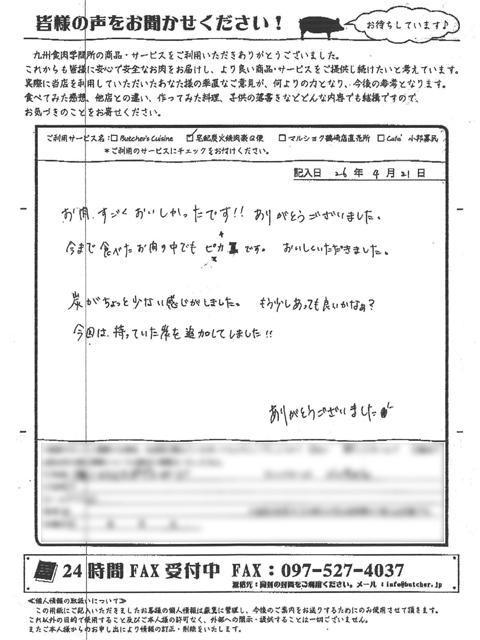 皆様の声をお聞かせください！
お待ちしています♪
九州食肉学問所の商品・サービスをご利用いただきありがとうございました。
これからも皆様に安心で安全なお肉をお届けし、より良い商品・サービスをご提供し続けたいと考えています。
実際に当店を利用していただいたあなた様の率直なご意見が、何よりの力となり、今後の参考となります。
食べてみた感想、他店との違い、作ってみた料理、子供の落書きなどどんな内容でも結構ですので、
お気づきのことをお寄せください。
ご利用サービス名：□Butcher's Cuisine ☑宅配炭火焼肉楽豆便 □マルショク鶴崎店直売所 □Cafe' 小邦寡民
＊ご利用のサービスにチェックをお付けください。
記入日 26 年 4 月 21 日
お肉、すごくおいしかったです!! ありがとうございました。
今まで食べたお肉の中でもピカ1です。 おいしくいただきました。
炭がちょっと少ない感じがしました。 もう少しあっても良いかなぁ?
今回は、持っていた炭を追加してしました!!
ありがとうございました
24時間FAX受付中 FAX：097-527-4037
返信先：同封の封筒をご利用ください。メール：info@butcher.jp
≪個人情報の取扱いについて≫
この用紙にご記入いただきましたお客様の個人情報は厳重に管理し、今後のご案内をお送りするためにのみ使用させて頂きます。
これ以外の目的で使用すること及びご本人様の許可なく、外部への開示・提供することは一切ございません。
またご本人様からのお申し出により情報の訂正・削除をいたします。